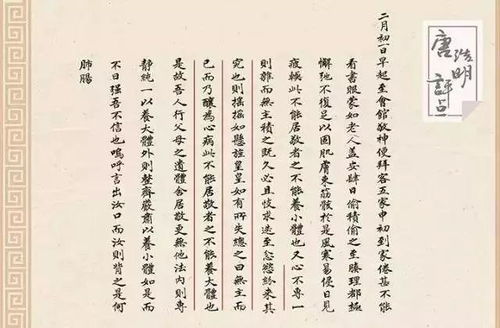 唐浩明
評點
二月初一日早起至會館敬神便拜客五家申初到家倦甚不能
看書眼蒙如老人蓋安肆日偷積偷之至腠理都極
懈弛不復足以固肌膚束筋骸於是風寒易侵日見
疲輭此不能居敬者之不能養小體也又心不專一
則雜而無主積之既久必且忮求迭至忿慾紛來其
究也則搖搖如懸旌皇皇如有所失總之曰無主而
已而乃釀為心病此不能居敬者之不能養大體也
是故吾人行父母之遺體舍居敬更無他法內則專
靜純一以養大體外則整齊嚴肅以養小體如是而
不日强吾不信也嗚呼言出汝口而汝則背之是何
肺腸